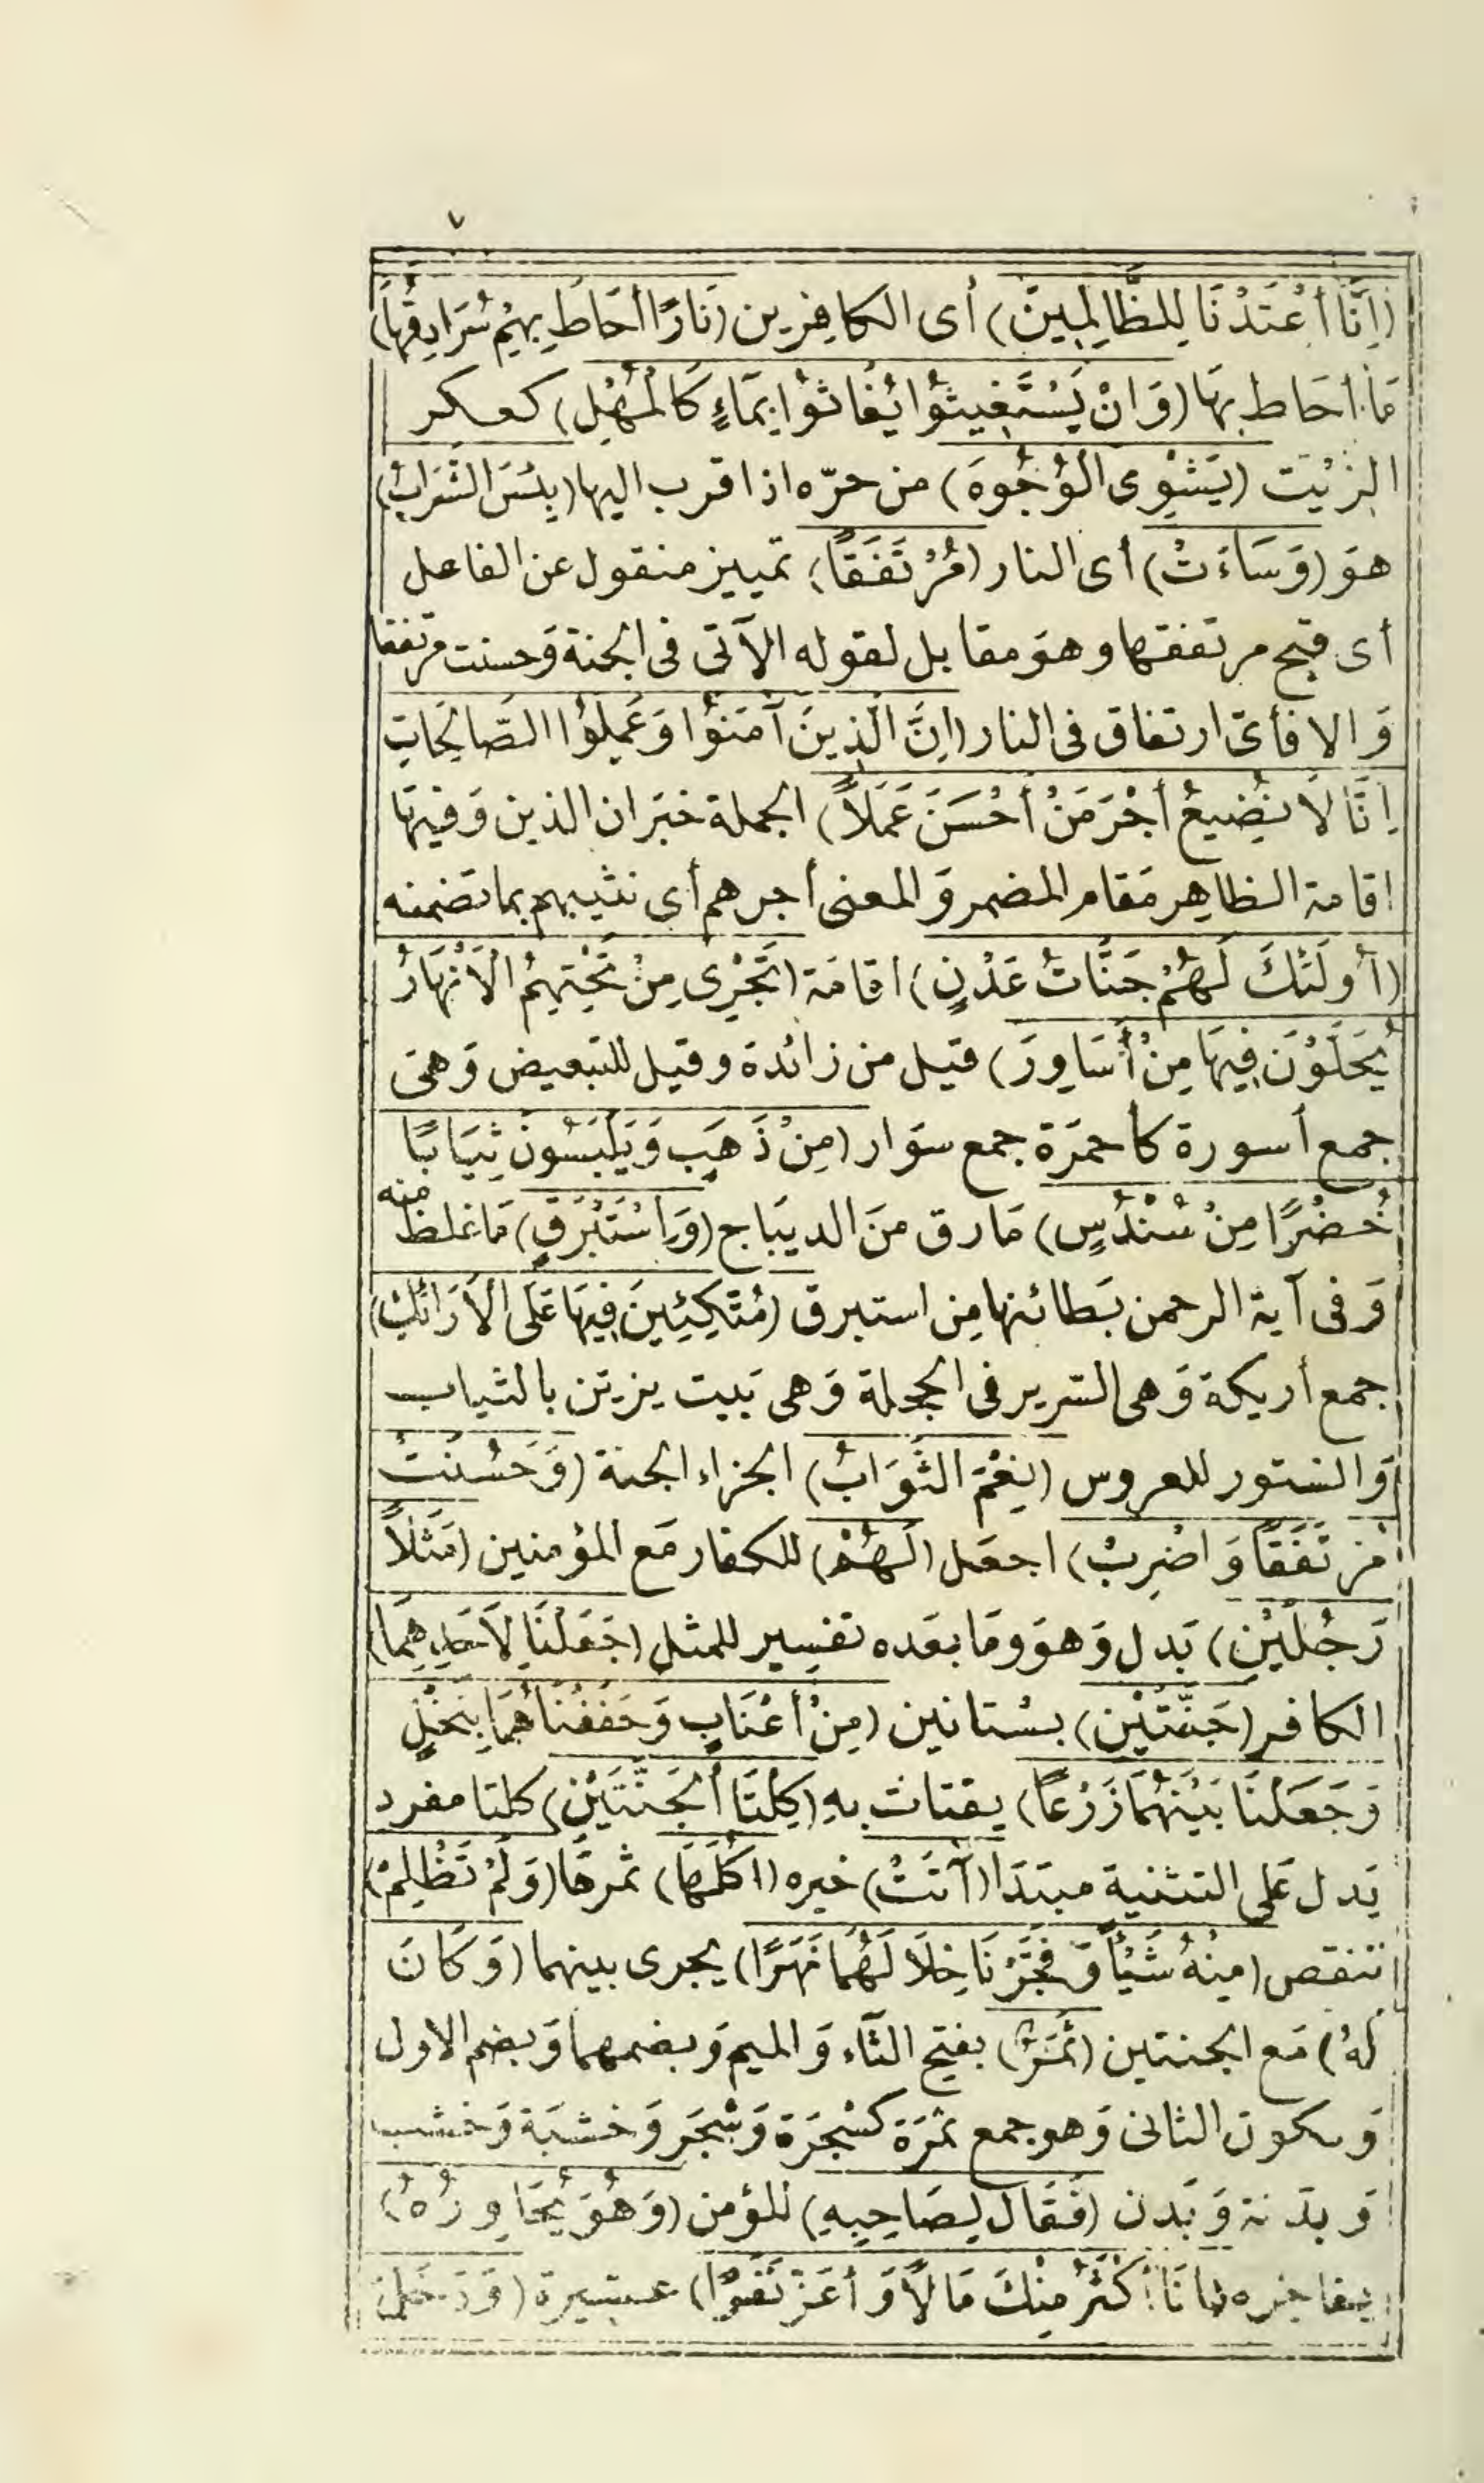 ٧
(اِنَّا أَعْتَدْنَا لِلظَّالِمِينَ) أى الكافِرين (نَارًا أَحَاطَ بِهِمْ سُرَادِقُهَا)
مَا أحَاط بهَا (وَاِنْ يَسْتَغِيثُوْا يُغَاثوْا بِمَآءٍ كَالْمُهْلِ) كعكر
الزيْت (يَشْوِى الْوُجُوهَ) من حرّه اذا قرب اليها (بِئسَ الشَّرَابُ)
هوَ (وَسَاءَتْ) أى النار (مُرْتَفَقًا) تمييز منقول عن الفاعل
أى قبح مرتفقها وهوَ مقابل لقوله الآتى فى الجنة وَحسنت مرتفقا
وَالا فأىّ ارتفاق فى النار (اِنَّ الَّذِينَ آمَنوُا وَعَمِلوُا الصَّالِحَاتِ
اِنَّا لَا نُضِيعُ أجْرَ مَنْ أَحْسَنَ عَمَلاً) الجملة خبَر ان الذين وَفيهَا
اقامة الظاهِر مَقام المضمر وَالمعنى أجرهم أي نثيبهم بما تضمنه
(أُولَئكَ لَهُمْ جَنَّاتُ عَدْنٍ) اقامَة (تَجْرِى مِنْ تَحْتِهِمُ الْاَنْهَارُ
يُحَلَّوْنَ فِيهَا مِنْ أَسَاوِرَ) قيل من زائدة وقيل للتبعيض وَهىَ
جمع أسورة كأحمرَة جمع سوَار (مِنْ ذَهَبٍ وَيَلْبَسُونَ ثِيَابًا
خُضْرًا مِنْ سُنْدُسٍ) مَا رق منَ الديبَاج (وَاِسْتَبْرَقٍ) مَا غلظ منه
وَفى آية الرحمن بَطائنها مِن استبرق (مُتَّكِئِينَ فِيهَا عَلَى الْاَرَائكِ)
جمع أريكة وَهى السّرير فى الحجلة وَهى بَيت يزين بالثياب
وَالستور للعروس (نِعْمَ الثَّوَابُ) الجزاء الجنة (وَحَسُنَتْ
مُرْتَفَقًا وَاضْرِبْ) اجعَل (لَهُمْ) للكفار مَع المؤمنين (مَثَلاً
رَجُلَيْنِ) بَدل وَهوَ وَمَا بعَده تفسِير للمثل (جَعَلْنَا لِاَحَدِهِمَا)
الكافر (جَنَّتَيْنِ) بسْتانين (مِنْ أَعْنَابٍ وَحَفَفْنَاهُمَا بِنَخْلٍ
وَجَعَلْنَا بَيْنَهُمَا زَرْعًا) يقتات بهِ (كِلْتَا الْجَنَّتَيْنِ) كلتا مفرد
يَدل عَلى التثنية مبتدَا (آتَتْ) خبره (اُكُلَهَا) ثمرهَا (وَلَمْ تَظْلِمْ)
تنقص (مِنْهُ شَيْأً وَفَجَّرْنَا خِلَالَهُمَا نَهَرًا) يجرى بينهما (وَكَانَ
لهُ) مَع الجنتين (ثَمَرٌ) بفتح الثآء وَالميم وَبضمهما وَبضم الاول
وَسكون الثانى وَهو جمع ثمَرَة كشْجَرَة وَشْجَر وَخشبَة وَخشب
وَبدَنة وَبَدن (فَقَالَ لِصَاحِبِهِ) للمؤمن (وَهُوَ يُحَاوِرُهُ)
يفاخره (أنَا أَكْثَرُ مِنْكَ مَالًا وَأعَزُّ نَفَرًا) عشيرة (وَدَخَلَ